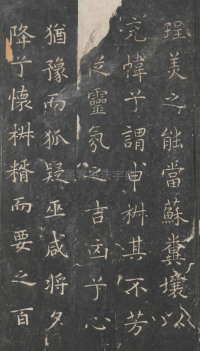 珵美之能當蘇糞壤以
充幃兮謂申椒其不芳
從靈氛之吉占兮心
猶豫而狐疑巫咸將夕
降兮懷椒糈而要之百